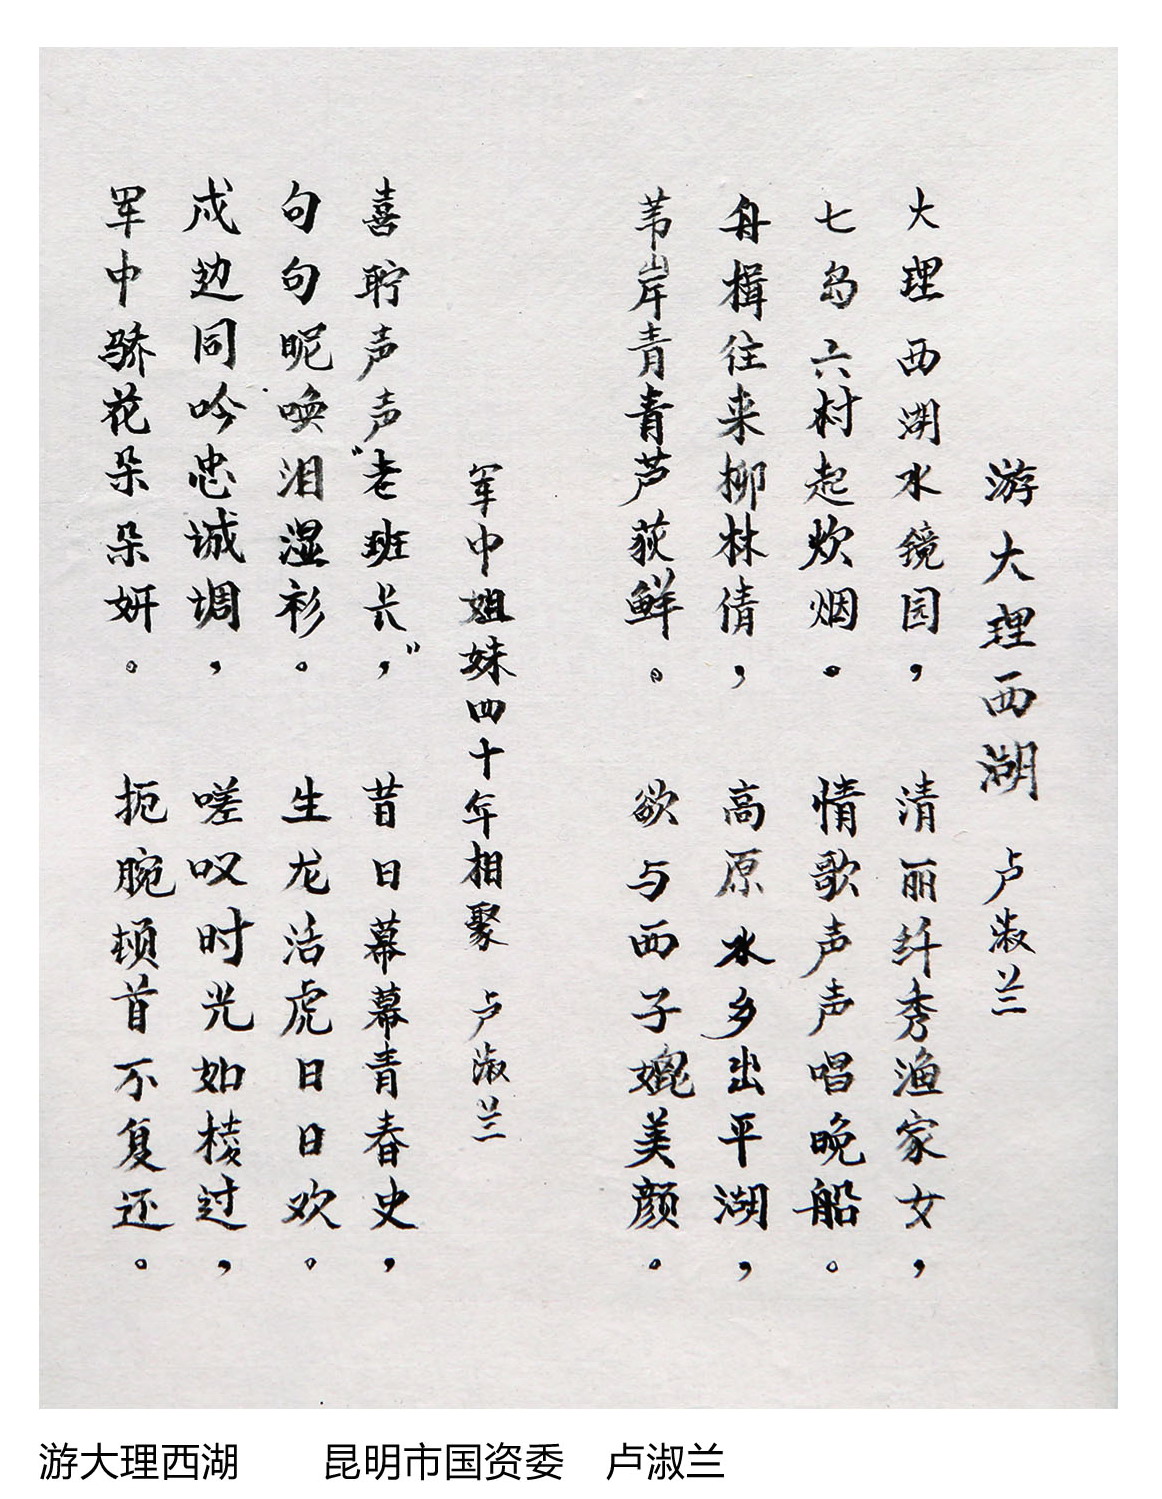 游大理西湖 卢淑兰
大理西湖水镜园， 清丽纤秀渔家女，
七岛六村起炊烟。 情歌声声唱晚船。
舟楫往来柳林倩， 高原水乡出平湖，
苇岸青青芦荻鲜。 欲与西子媲美颜。
军中姐妹四十年相聚 卢淑兰
喜聍声声“老班长”， 昔日幕幕青春史，
句句昵唤泪湿衫。 生龙活虎日日欢。
戍边同吟忠诚调， 嗟叹时光如棱过，
军中骄花朵朵妍。 扼腕顿首不复还。
游大理西湖 昆明市国资委 卢淑兰